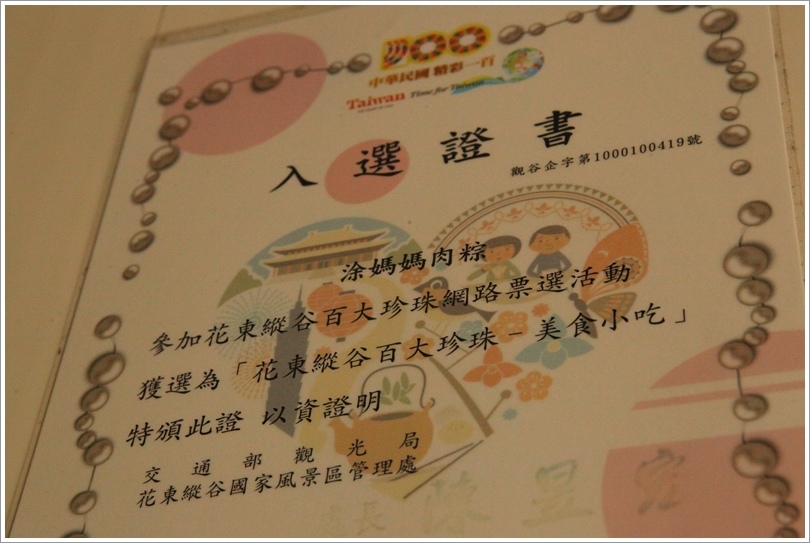 100
中華民國 精彩一百
Taiwan Time for Taiwan
入選證書
觀谷企字第1000100419號
涂媽媽肉粽
參加花東縱谷百大珍珠網路票選活動
獲選為「花東縱谷百大珍珠－美食小吃」
特頒此證 以資證明
交通部觀光局
花東縱谷國家風景區管理處
處長 陳昱宏